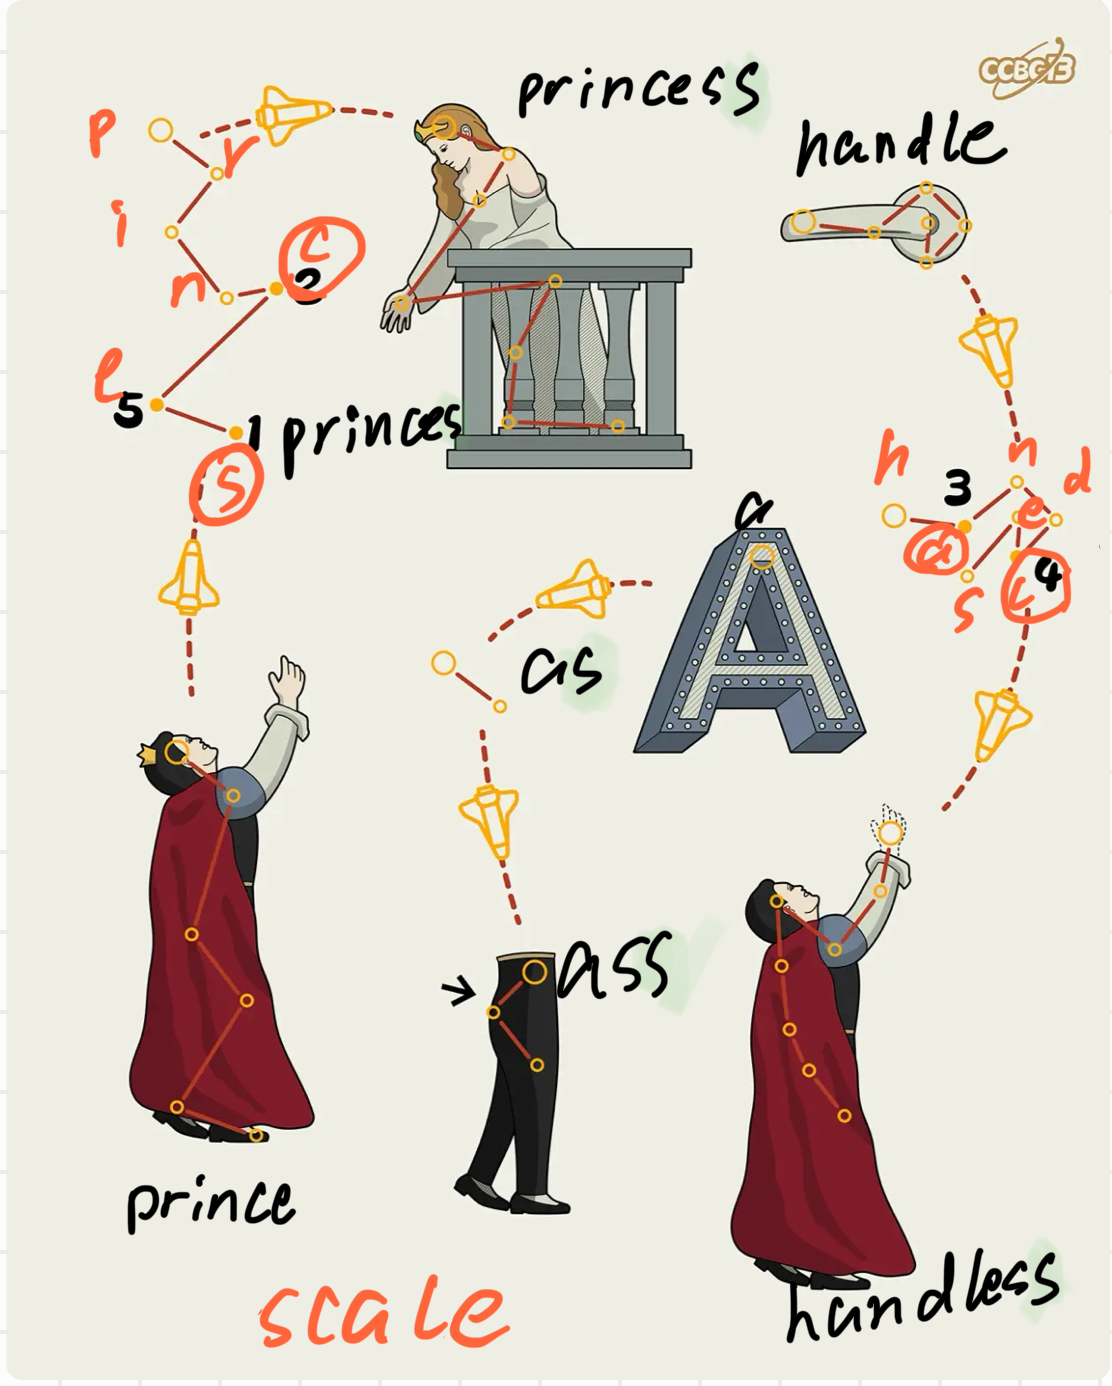 CCBC 13
princess
handle
p
r
i
c
n
2
e
5
1 princes
s
h
n
d
3
a
e
s
l
4
a
as
ass
prince
handless
scale